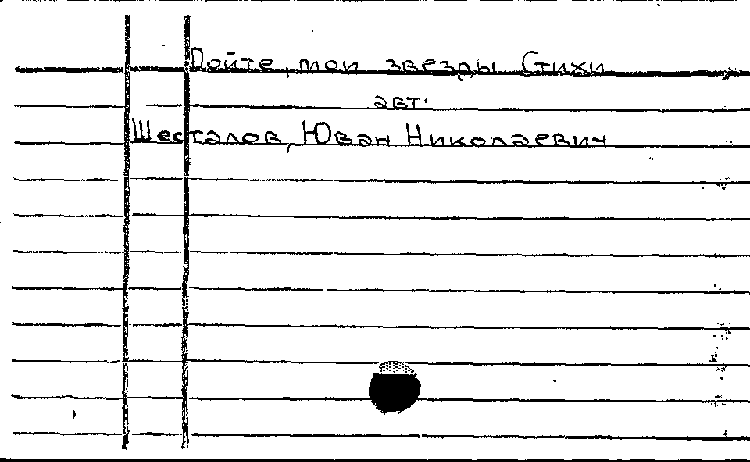 Пойте, мои звезды Стихи
авт.
Шесталов, Юван Николаевич